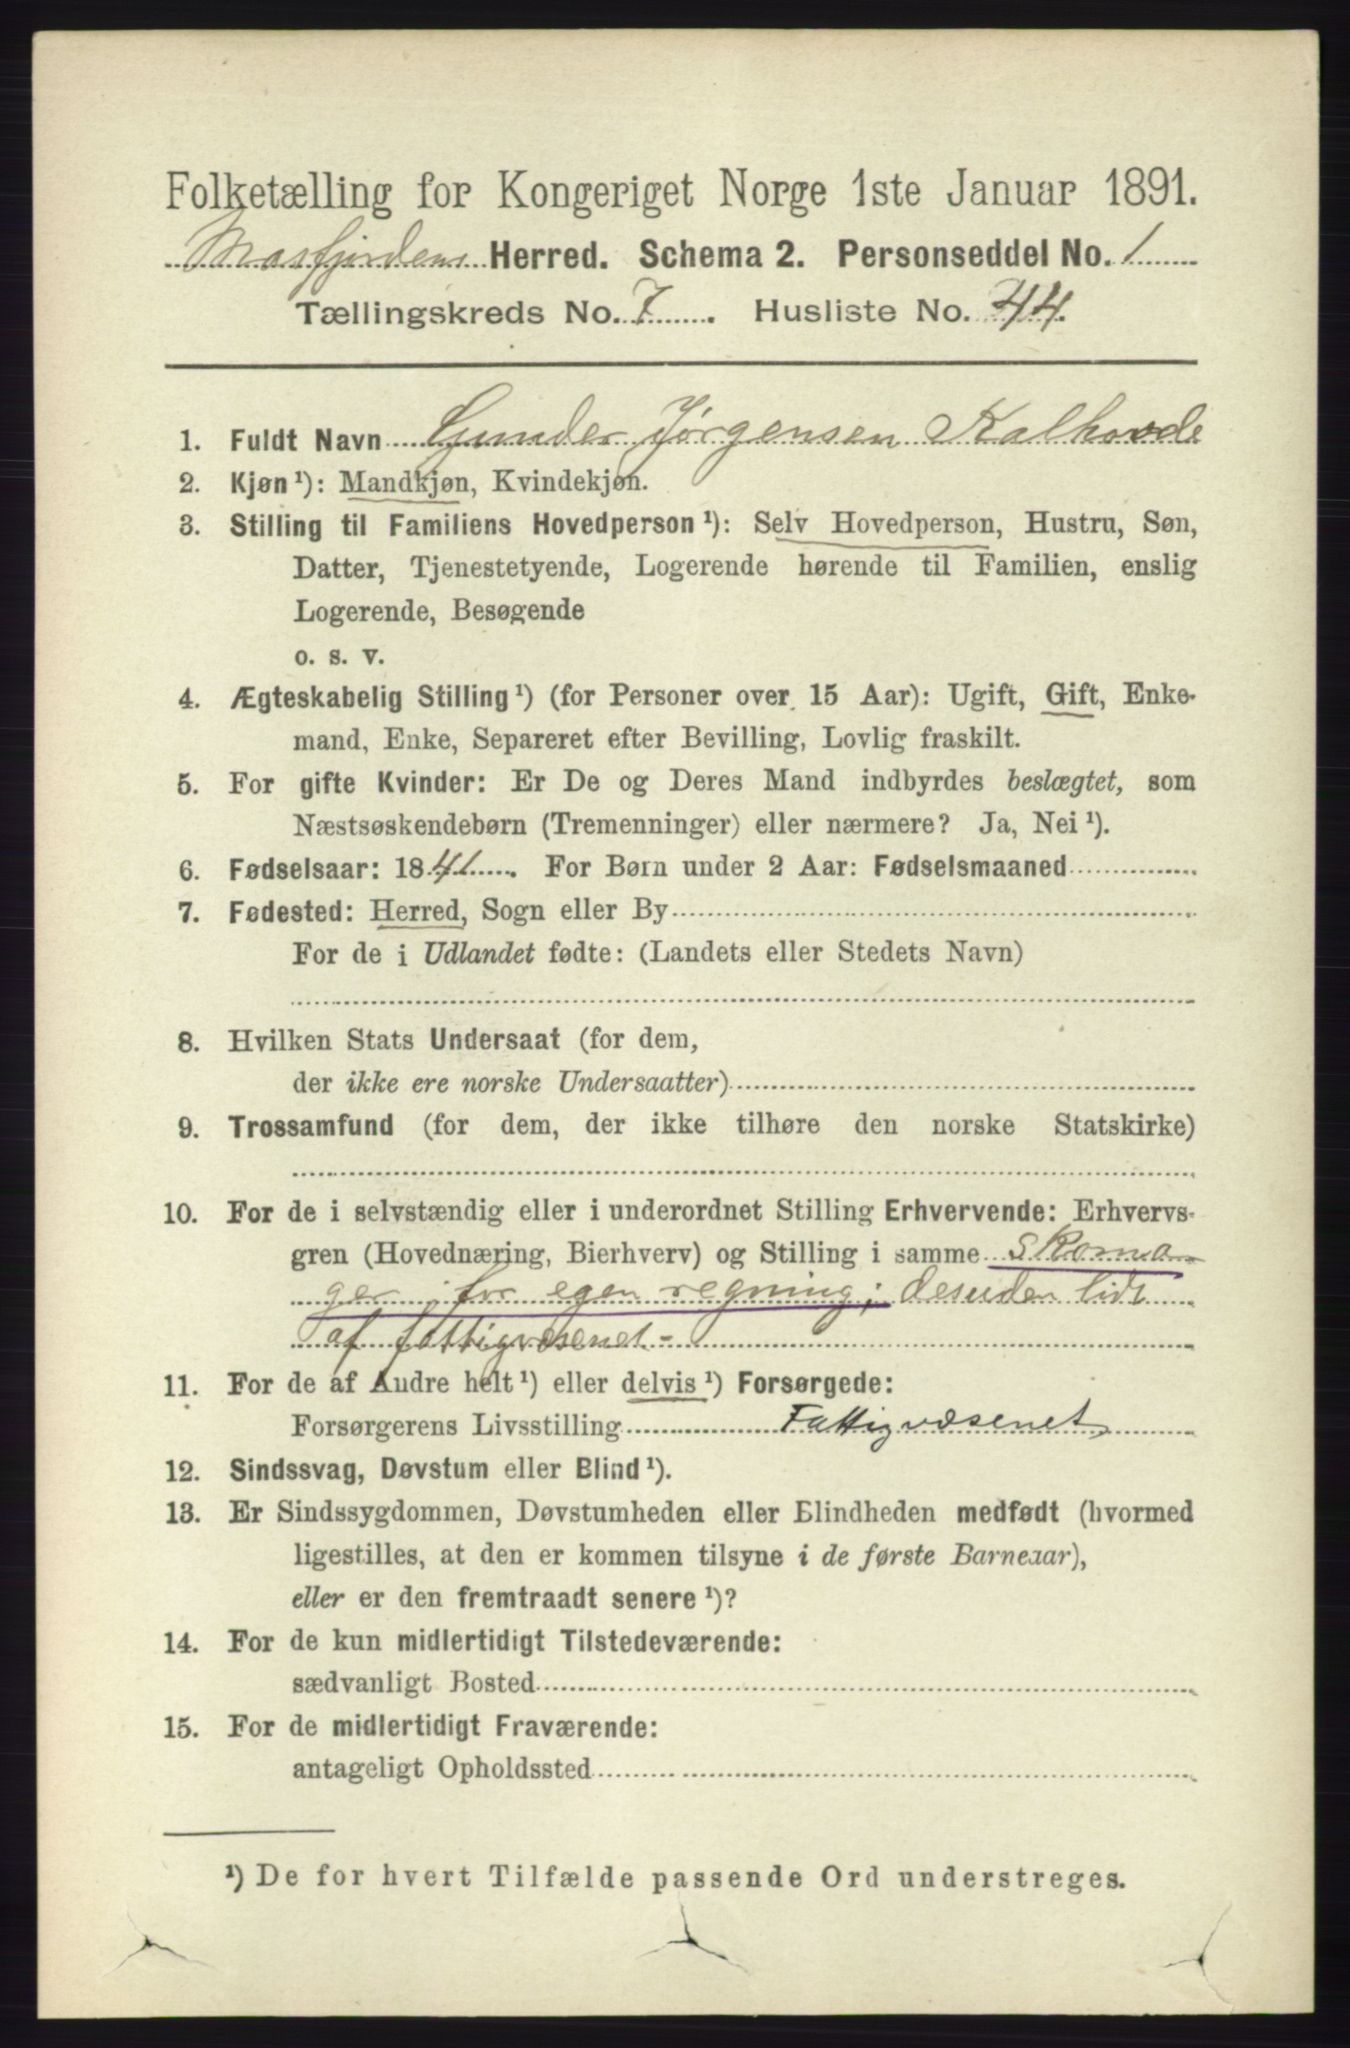 Folketælling for Kongeriget Norge 1ste Januar 1891.
Masfjordens Herred. Schema 2. Personseddel No. 1
Tællingskreds No. 7. Husliste No. 44.
1. Fuldt Navn Gunder Jørgensen Kalhovde
2. Kjøn¹): Mandkjøn, Kvindekjøn.
3. Stilling til Familiens Hovedperson¹): Selv Hovedperson, Hustru, Søn,
Datter, Tjenestetyende, Logerende hørende til Familien, enslig
Logerende, Besøgende
o. s. v.
4. Ægteskabelig Stilling¹) (for Personer over 15 Aar): Ugift, Gift, Enke-
mand, Enke, Separeret efter Bevilling, Lovlig fraskilt.
5. For gifte Kvinder: Er De og Deres Mand indbyrdes beslægtet, som
Næstsøskendebørn (Tremenninger) eller nærmere? Ja, Nei¹).
6. Fødselsaar: 1841. For Børn under 2 Aar: Fødselsmaaned
7. Fødested: Herred, Sogn eller By
For de i Udlandet fødte: (Landets eller Stedets Navn)
8. Hvilken Stats Undersaat (for dem,
der ikke ere norske Undersaatter)
9. Trossamfund (for dem, der ikke tilhøre den norske Statskirke)
10. For de i selvstændig eller i underordnet Stilling Erhvervende: Erhvervs-
gren (Hovednæring, Bierhverv) og Stilling i samme Skoma-
ger for egen regning; desuden lidt
af fattigvæsenet -
11. For de af Andre helt¹) eller delvis¹) Forsørgede:
Forsørgerens Livsstilling Fattigvæsenet
12. Sindssvag, Døvstum eller Blind¹).
13. Er Sindssygdommen, Døvstumheden eller Blindheden medfødt (hvormed
ligestilles, at den er kommen tilsyne i de første Barneaar),
eller er den fremtraadt senere¹)?
14. For de kun midlertidigt Tilstedeværende:
sædvanligt Bosted
15. For de midlertidigt Fraværende:
antageligt Opholdssted
¹) De for hvert Tilfælde passende Ord understreges.